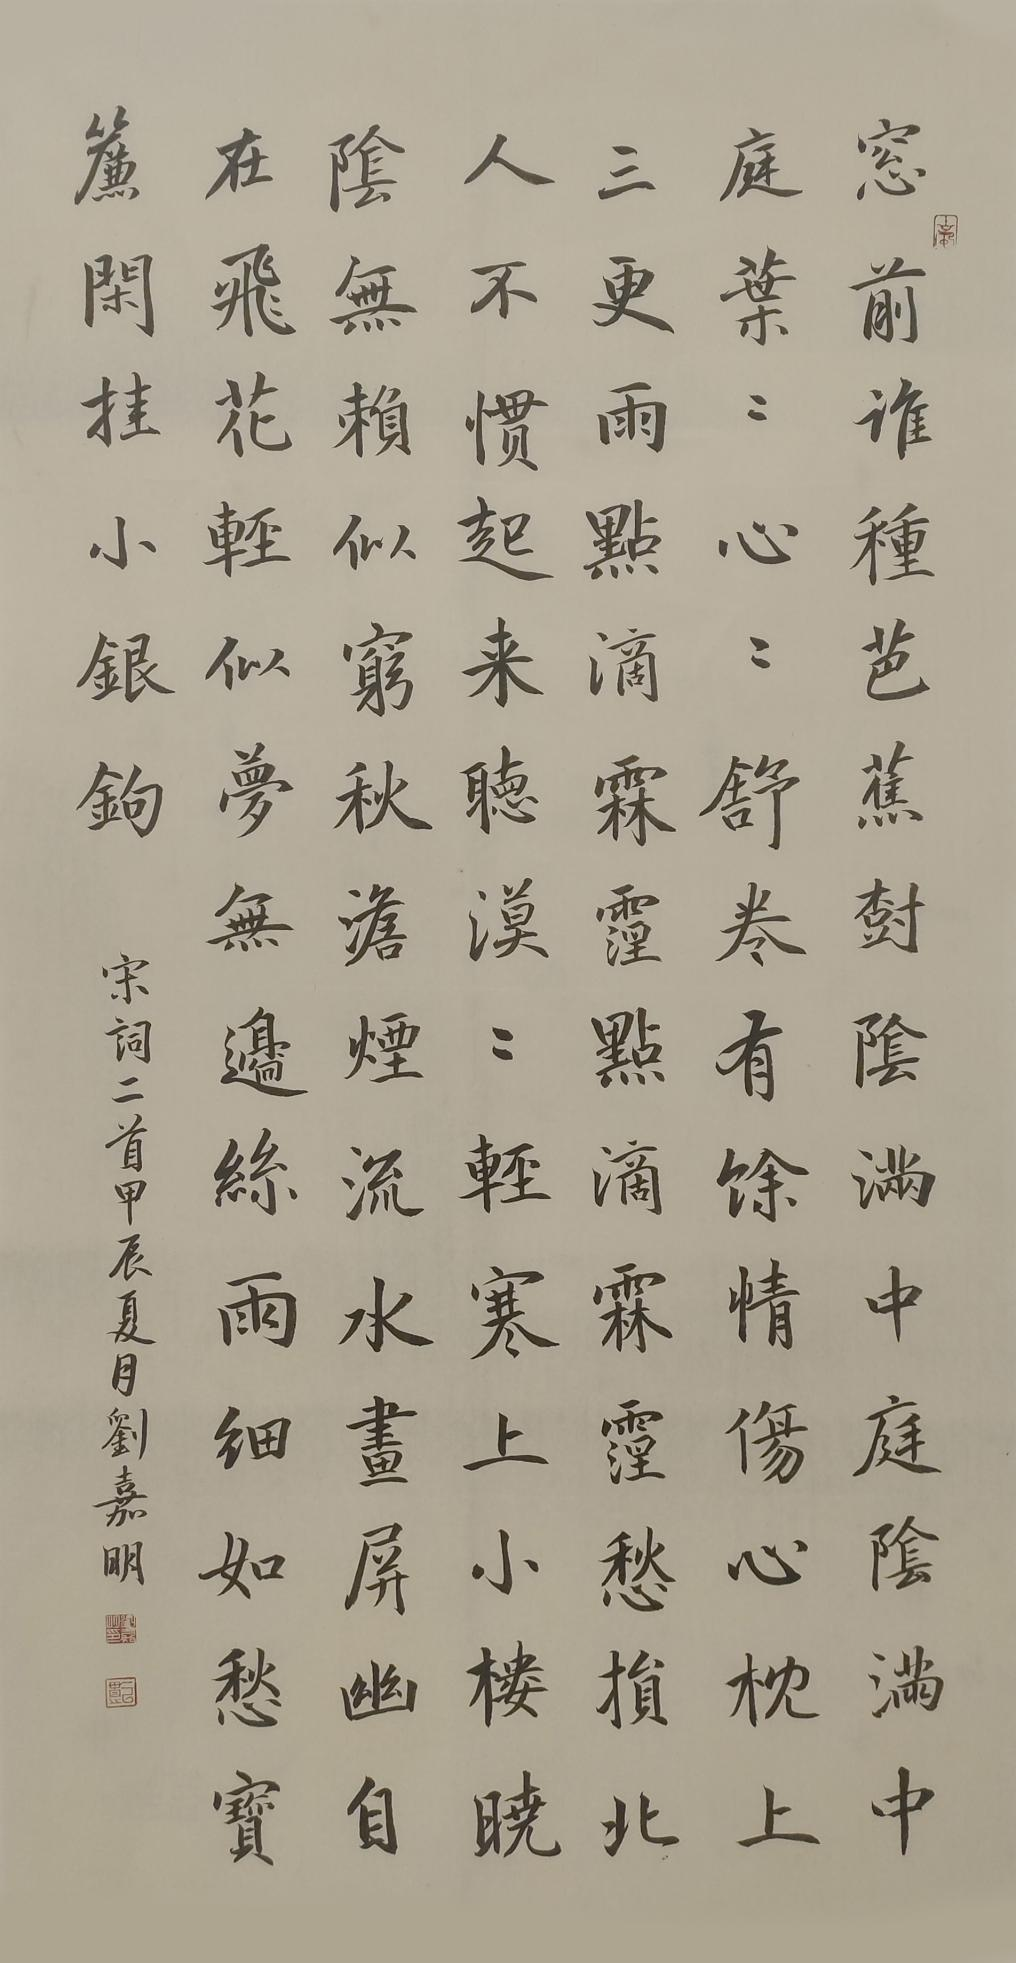 窓前谁種芭蕉樹陰滿中庭陰滿中
庭葉〻心〻舒卷有馀情傷心枕上
三更雨點滴霖霪點滴霖霪愁損北
人不慣起来聴漠〻輕寒上小楼暁
陰無賴似窮秋澹煙流水畫屏幽自
在飛花輕似夢無邊絲雨細如愁寶
簾閑挂小銀鉤
宋詞二首甲辰夏月劉嘉明